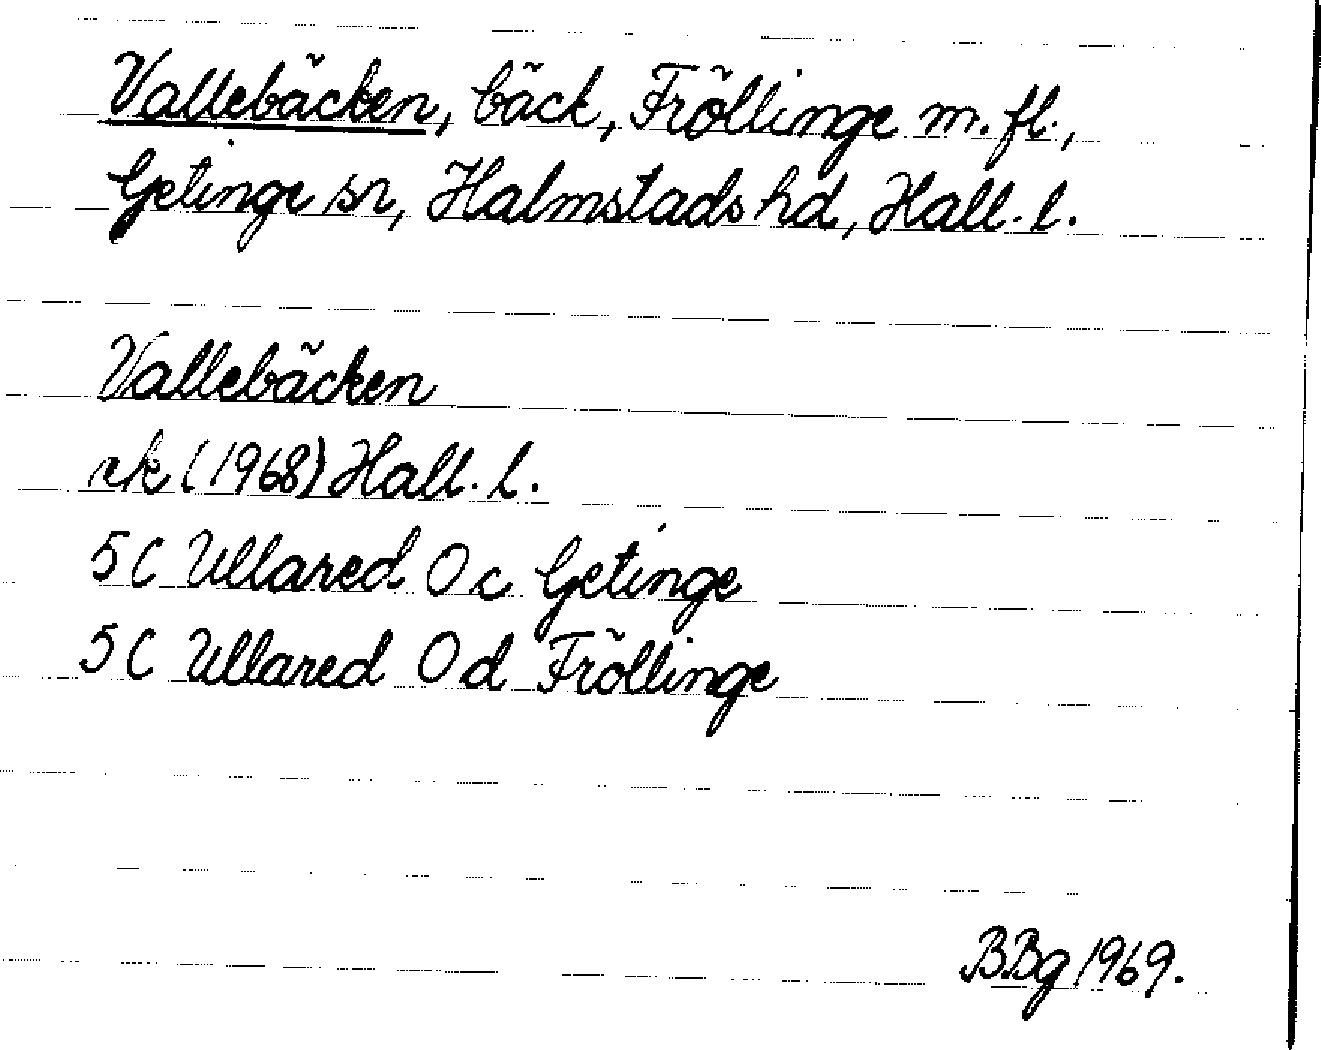 Vallebäcken, bäck, Fröllinge m. fl.,
Getinge sn, Halmstads hd, Hall. l.
Vallebäcken
rk (1968) Hall. l.
5C Ullared 0 c Getinge
5C Ullared 0 d Fröllinge
BBg 1969.